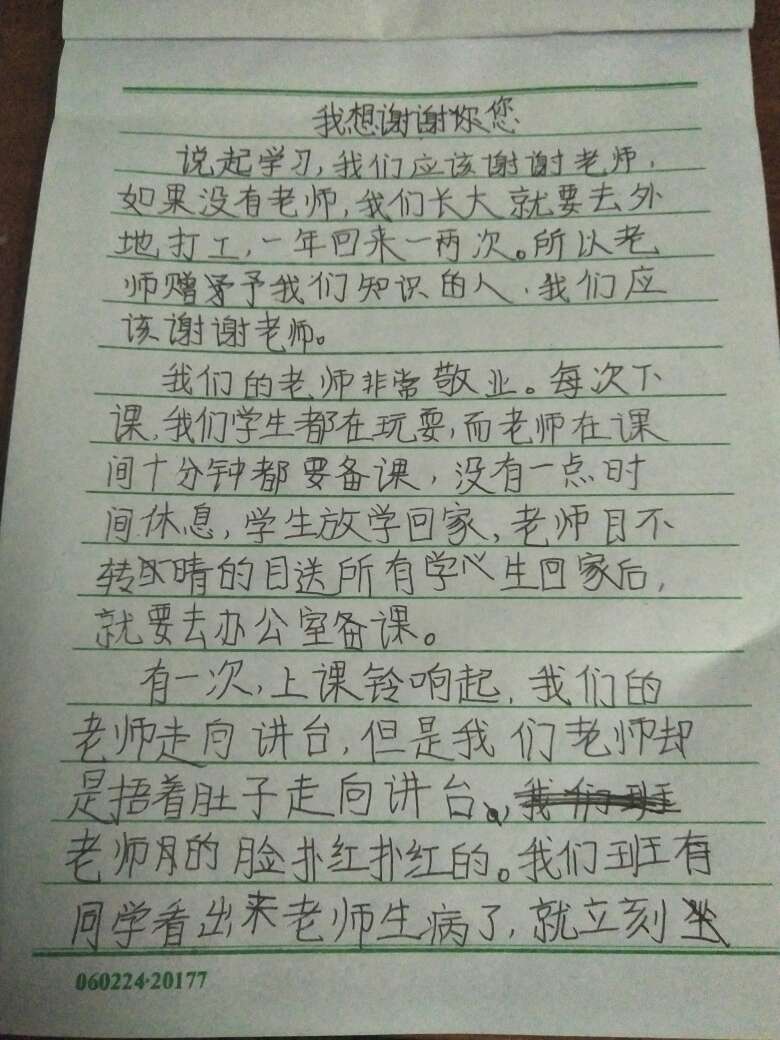 我想谢谢你您
说起学习,我们应该谢谢老师,
如果没有老师,我们长大就要去外
地打工,一年回来一两次。所以老
师赠予我们知识的人,我们应
该谢谢老师。
我们的老师非常敬业。每次下
课,我们学生都在玩耍,而老师在课
间十分钟都要备课,没有一点时
间休息,学生放学回家,老师目不
转晴的目送所有学生回家后,
就要去办公室备课。
有一次,上课铃响起,我们的
老师走向讲台,但是我们老师却
是捂着肚子走向讲台。,我们班
老师的脸扑红扑红的。我们班有
同学看出来老师生病了,就立刻
060224·20177